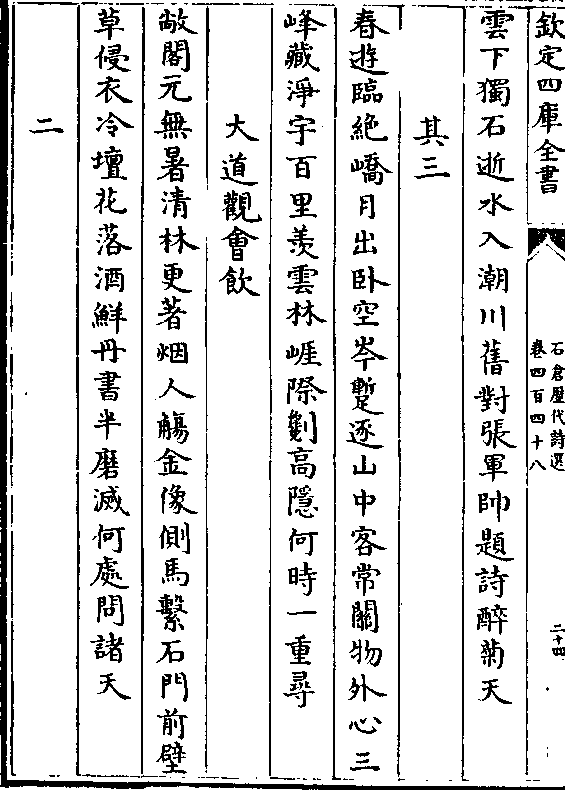 欽定四庫全書
石倉歷代詩選
卷四百四十八
二十四
雲下獨石逝水入潮川舊對張軍帥題詩醉菊天
其三
春遊臨絶嶠月出卧空岑蹔逐山中客常關物外心三
峰藏淨宇百里羨雲林崕際劉高隱何時一重尋
大道觀會飲
敞閣元無暑清林更著烟人觴金像側馬繫石門前壁
草侵衣冷壇花落酒鮮丹書半磨滅何處問諸天
二